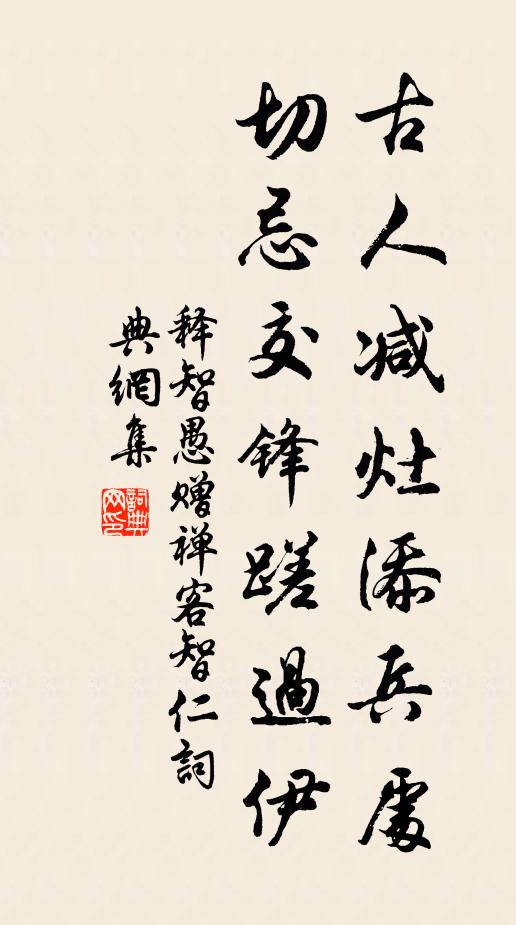 古人减灶添兵處
切忌交鋒蹉過伊
释智愚赠禅客智仁詞
典網集
詞典网印